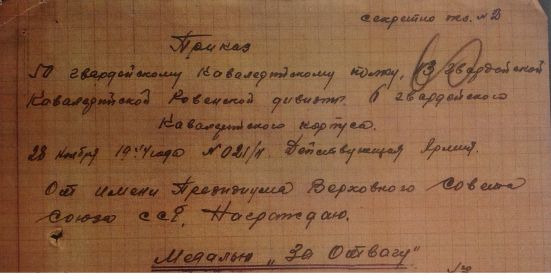 секретно экз. № 2
Приказ
50 гвардейскому кавалерийскому полку, 13 гвардейской
Кавалерийской Ровенской дивизии 6 гвардейского
Кавалерийского корпуса.
28 ноября 1944 года № 021/н. Действующая Армия.
От имени Президиума Верховного Совета
Союза ССР, Награждаю.
Медалью „За Отвагу"